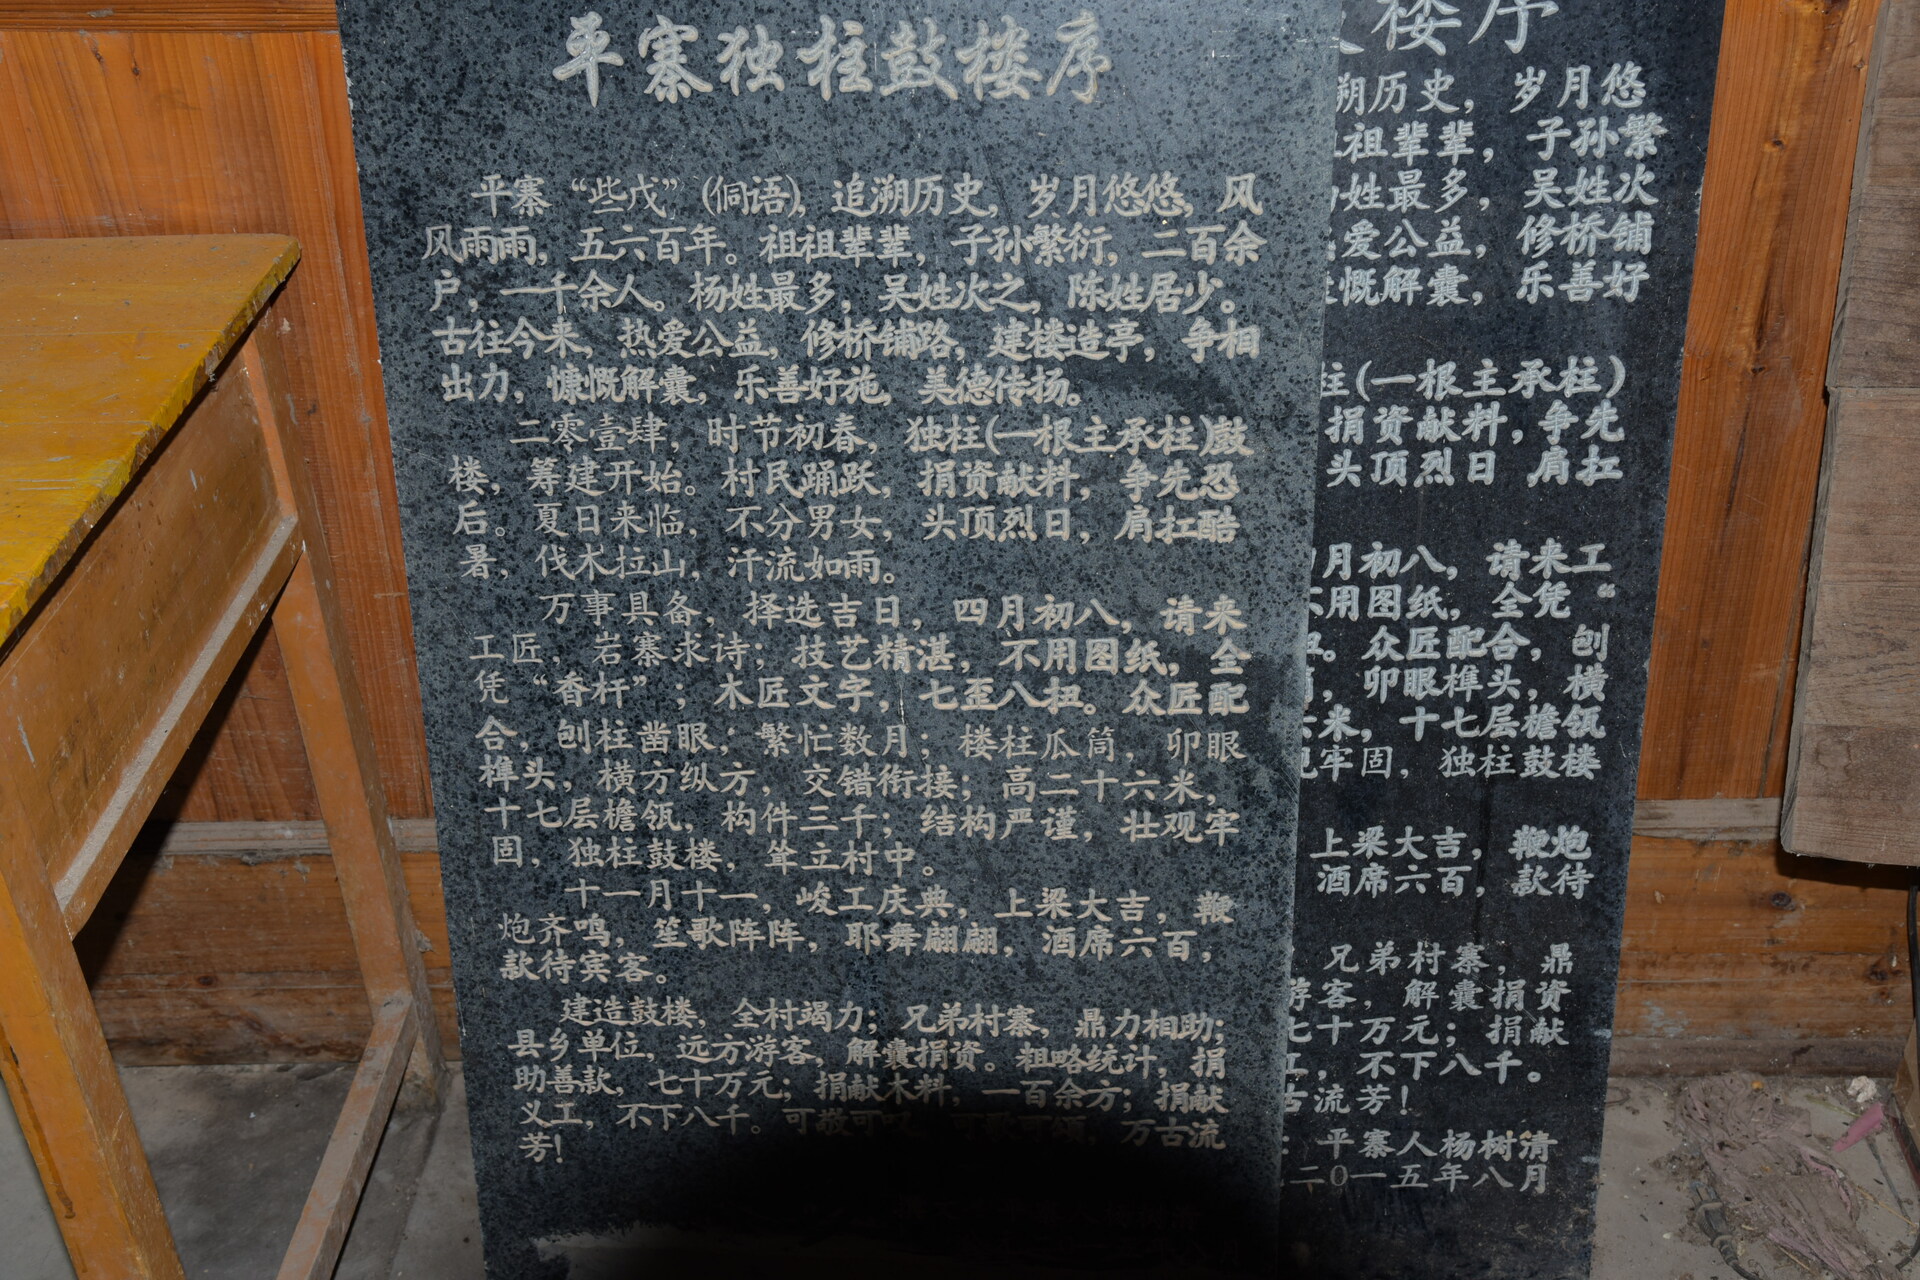 平寨独柱鼓楼序
平寨“些戊”(侗语)，追溯历史，岁月悠悠，风
风雨雨，五六百年。祖祖辈辈，子孙繁衍，二百余
户，一千余人。杨姓最多，吴姓次之，陈姓居少。
古往今来，热爱公益，修桥铺路，建楼造亭，争相
出力，慷慨解囊，乐善好施，美德传扬。
二零壹肆，时节初春，独柱(一根主承柱)鼓
楼，筹建开始。村民踊跃，捐资献料，争先恐
后。夏日来临，不分男女，头顶烈日，肩扛酷
暑，伐木拉山，汗流如雨。
万事具备，择选吉日，四月初八，请来
工匠，岩寨求诗；技艺精湛，不用图纸，全
凭“香杆”；木匠文字，七歪八扭。众匠配
合，刨柱凿眼；繁忙数月；楼柱瓜筒，卯眼
榫头，横方纵方，交错衔接；高二十六米，
十七层檐瓴，构件三千；结构严谨，壮观牢
固，独柱鼓楼，耸立村中。
十一月十一，峻工庆典，上梁大吉，鞭
炮齐鸣，笙歌阵阵，耶舞翩翩，酒席六百，
款待宾客。
建造鼓楼，全村竭力；兄弟村寨，鼎力相助；
县乡单位，远方游客，解囊捐资。粗略统计，捐
助善款，七十万元；捐献木料，一百余方；捐献
义工，不下八千。可敬可叹，可歌可颂，万古流
芳！
楼序
朔历史，岁月悠
祖辈辈，子孙繁
姓最多，吴姓次
爱公益，修桥铺
慨解囊，乐善好
柱(一根主承柱)
捐资献料，争先
头顶烈日 肩扛
月初八，请来工
用图纸，全凭“
。众匠配合，刨
，卯眼榫头，横
米，十七层檐瓴
牢固，独柱鼓楼
上梁大吉，鞭炮
酒席六百，款待
兄弟村寨，鼎
游客，解囊捐资
七十万元；捐献
工，不下八千。
古流芳！
：平寨人杨树清
二0一五年八月